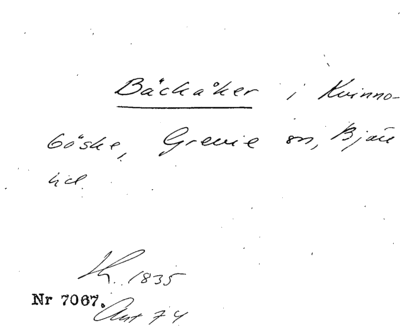 Bäckåker i Kvinno-
böske, Grevie sn, Bjäre
hd.
1835
Nr 7067.
Ant 74